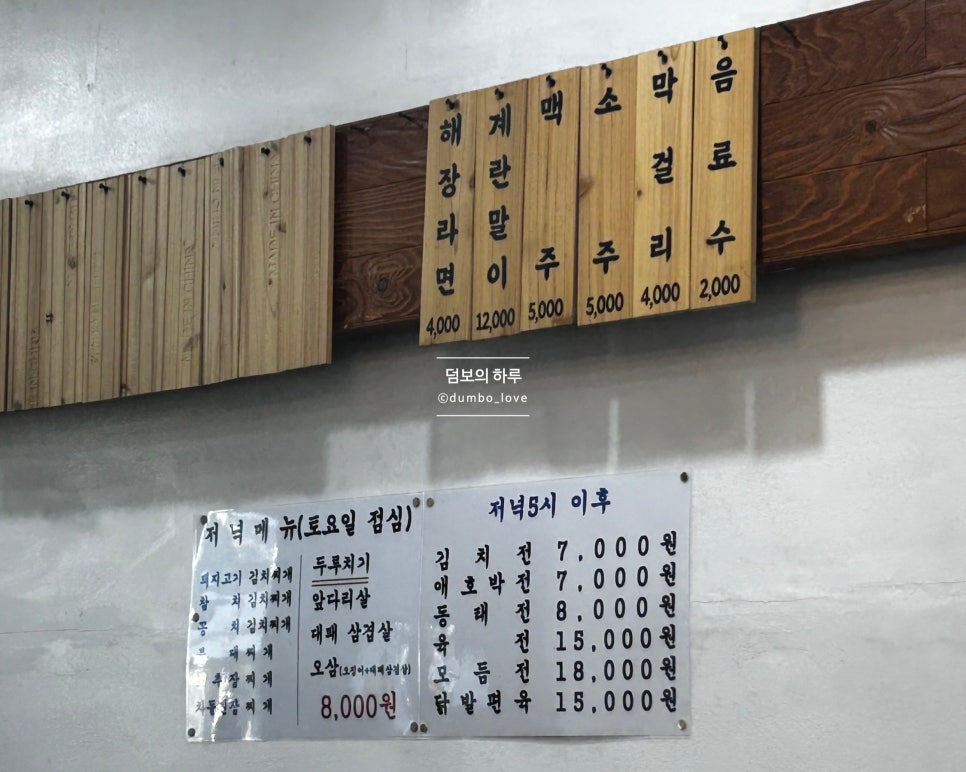 해장라면 4,000
계란말이 12,000
맥주 5,000
소주 5,000
막걸리 4,000
음료수 2,000
덤보의 하루
©dumbo_love
저녁메뉴(토요일 점심)
돼지고기 김치찌개
참치 김치찌개
꽁치 김치찌개
부대찌개
추장찌개
차돌된장찌개
두루치기
앞다리살
대패 삼겹살
오삼(오징어+대패삼겹살)
8,000원
저녁5시 이후
김치전 7,000원
애호박전 7,000원
동태전 8,000원
육전 15,000원
모듬전 18,000원
닭발편육 15,000원